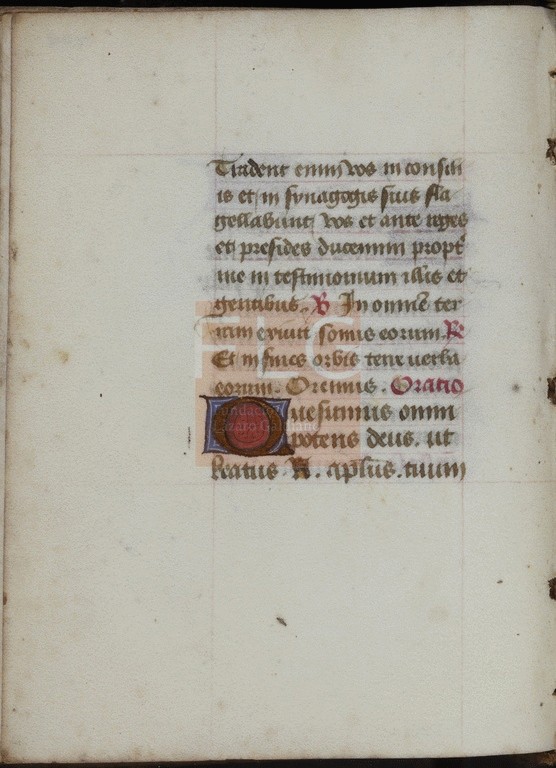 Tradent enim vos in consili
is et in synagogis suis fla
gellabunt vos et ante reges
et presides ducemini propt
me in testimonium illis et
gentibus. V In omnē ter
ram exiuit sonus eorum. R
Et in fines orbis terre uerba
eorum. Oremus. Oratio
Quesumus omni
potens deus. ut
beatus N. aplus. tuum
FLG
Fundación
Lázaro Galdiano